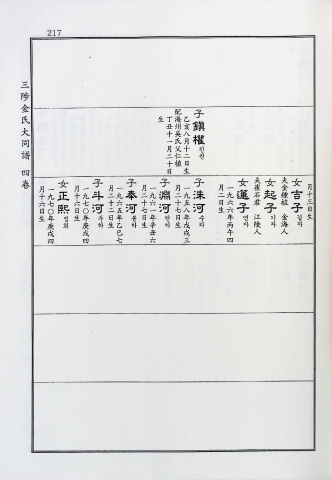 217
三陟金氏大同譜 四卷
子鎭權 진권
乙亥八月十二日生
配濟州吳氏父仁植
丁丑十一月三十日
生
月十三日生
女吉子 길자
夫金鍾植 金海人
女起子 기자
夫崔石君 江陵人
女蓮子 연자
一九六六年丙午四
月二十八日生
子洙河 수하
一九五八年戊戌三
月二十七日生
子淵河 연하
一九六一年辛丑六
月二十七日生
子奉河 봉하
一九六五年乙巳七
月二十二日生
子斗河 두하
一九七〇年庚戌四
月十六日生
女正熙 정희
一九七〇年庚戌四
月十六日生